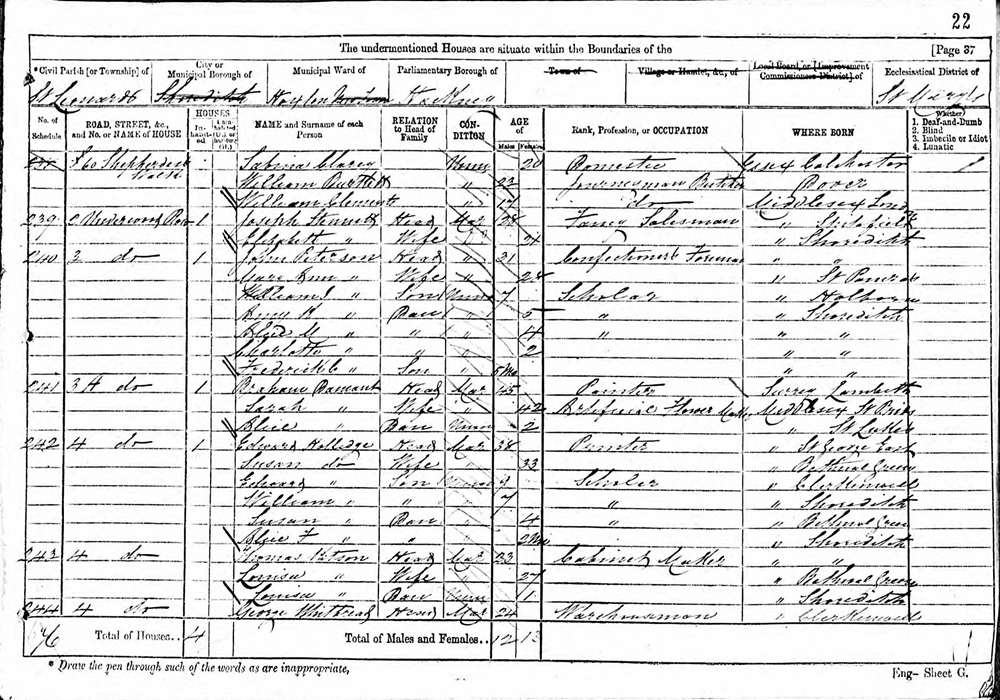 22
The undermentioned Houses are situate within the Boundaries of the [Page 37
*Civil Parish [or Township] of City or Municipal Borough of Municipal Ward of Parliamentary Borough of Town of Village or Hamlet, &c., of Local Board, or [Improvement Commissioners District] of Ecclesiastical District of
St Leonards Shoreditch Hoxton Hackney St
No. of Schedule ROAD, STREET, &c., and No. or NAME of HOUSE HOUSES Inhabited NAME and Surname of each Person RELATION to Head of Family CONDITION AGE of Males Females Rank, Profession, or OCCUPATION WHERE BORN Whether 1. Deaf-and-Dumb 2. Blind 3. Imbecile or Idiot 4. Lunatic
Shepherdess Walk Sabina Clarey Unm 20 Domestic Essex Colchester
William Burtlett " 23 Journeyman Dover
William Clements " 17 do Middlesex London
239 2 Underwood Row 1 Joseph Head Mar 24 Fancy Salesman "
Elizabeth " Wife " 24 " Shoreditch
240 3 do 1 John Peterson Head " 31 Confectioners Foreman " "
Mary Ann " Wife " 28 " St Pancras
William " Son Unm 7 Scholar " Holborn
" Dau " 5 " " Shoreditch
" " " 4 " " "
Charlotte " " " 2 " "
Frederick C " Son 5 Mo " "
241 3A do 1 Damant Head Mar 45 Painter Surrey Lambeth
Sarah " Wife " 42 Artificial Flower Maker Middlesex St Brides
Alice " Dau Unm 2 " St Lukes
242 4 do 1 Edward Hollidge Head Mar 38 Printer " St George East
Susan do Wife " 33 " Bethnal Green
Edward " Son 9 Scholar " Clerkenwell
William " " " 7 " " Shoreditch
Susan " Dau 4 " " Bethnal Green
Alice F " " 2 Mo " Shoreditch
243 4 do Thomas Head Mar 23 Cabinet Maker " "
Louisa " Wife " 27 " Bethnal Green
Louisa " Dau Unm 1 " Shoreditch
244 4 do George Whitbread Head Mar 24 Warehouseman " Clerkenwell
Total of Houses.. 4 Total of Males and Females.. 12 13
* Draw the pen through such of the words as are inappropriate. Eng- Sheet G.